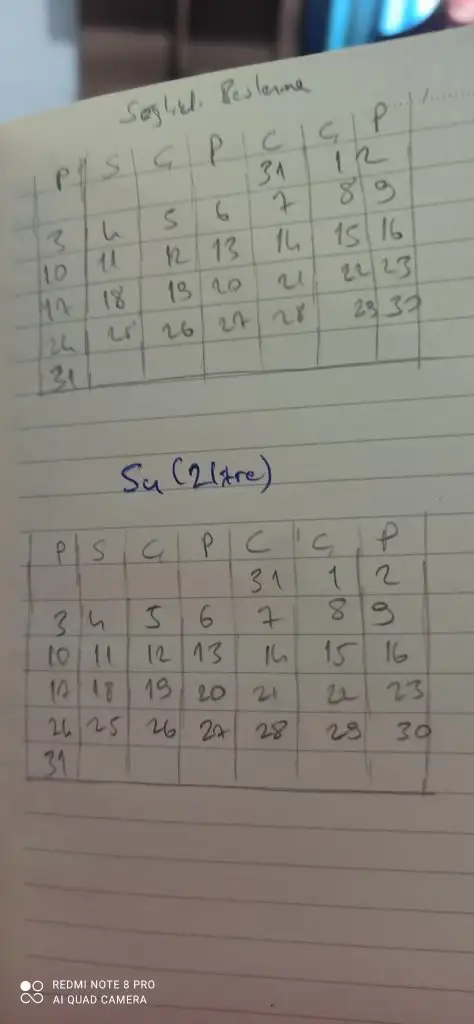 Sağlıklı Beslenme
P S Ç P C C P
31 1 2
3 4 5 6 7 8 9
10 11 12 13 14 15 16
17 18 19 20 21 22 23
24 25 26 27 28 29 30
31
Su (2litre)
P S Ç P C C P
31 1 2
3 4 5 6 7 8 9
10 11 12 13 14 15 16
17 18 19 20 21 22 23
24 25 26 27 28 29 30
31
REDMI NOTE 8 PRO
AI QUAD CAMERA